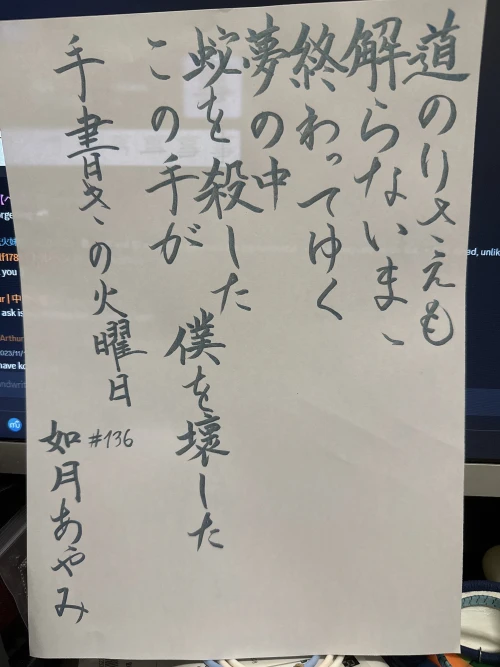 道のりさえも
解らないまゝ
終わってゆく
夢の中
蛇を殺した
この手が
僕を壊した
手書きの火曜日
#136
如月あやみ